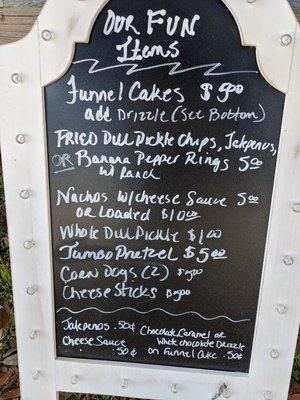 Our Fun
Items
Funnel Cakes $5.00
add Drizzle (See Bottom)
Fried Dill Pickle Chips, Jalepenos,
OR Banana Pepper Rings 5.00
w/ Ranch
Nachos w/Cheese Sauce 5.00
or Loaded $10.00
Whole Dill Pickle $1.00
Jumbo Pretzel $5.00
Corn Dogs (2) $5.00
Cheese Sticks $5.00
Jalapenos .50¢ Chocolate, Caramel or
Cheese Sauce White chocolate Drizzle
.50¢ on Funnel Cake .50¢